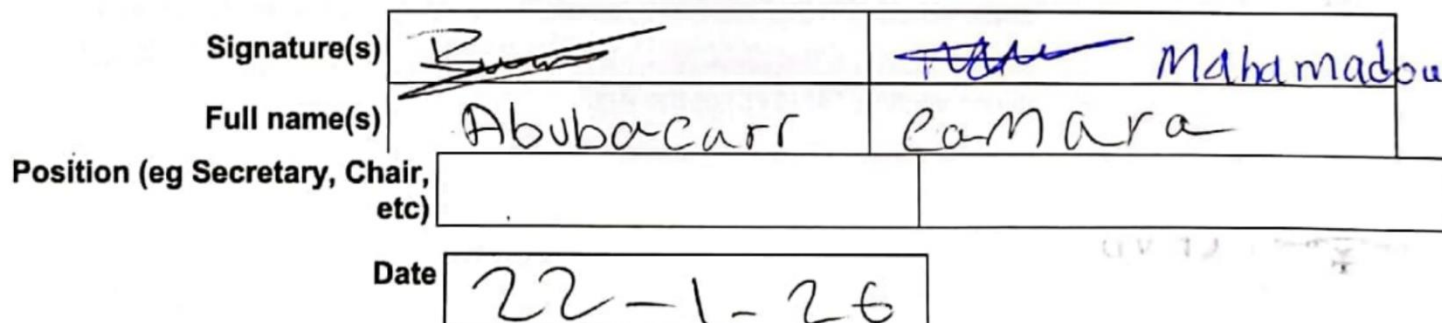 Signature(s) Mahamadou
Full name(s) Abubacarr Camara
Position (eg Secretary, Chair,
etc)
Date 22-1-26